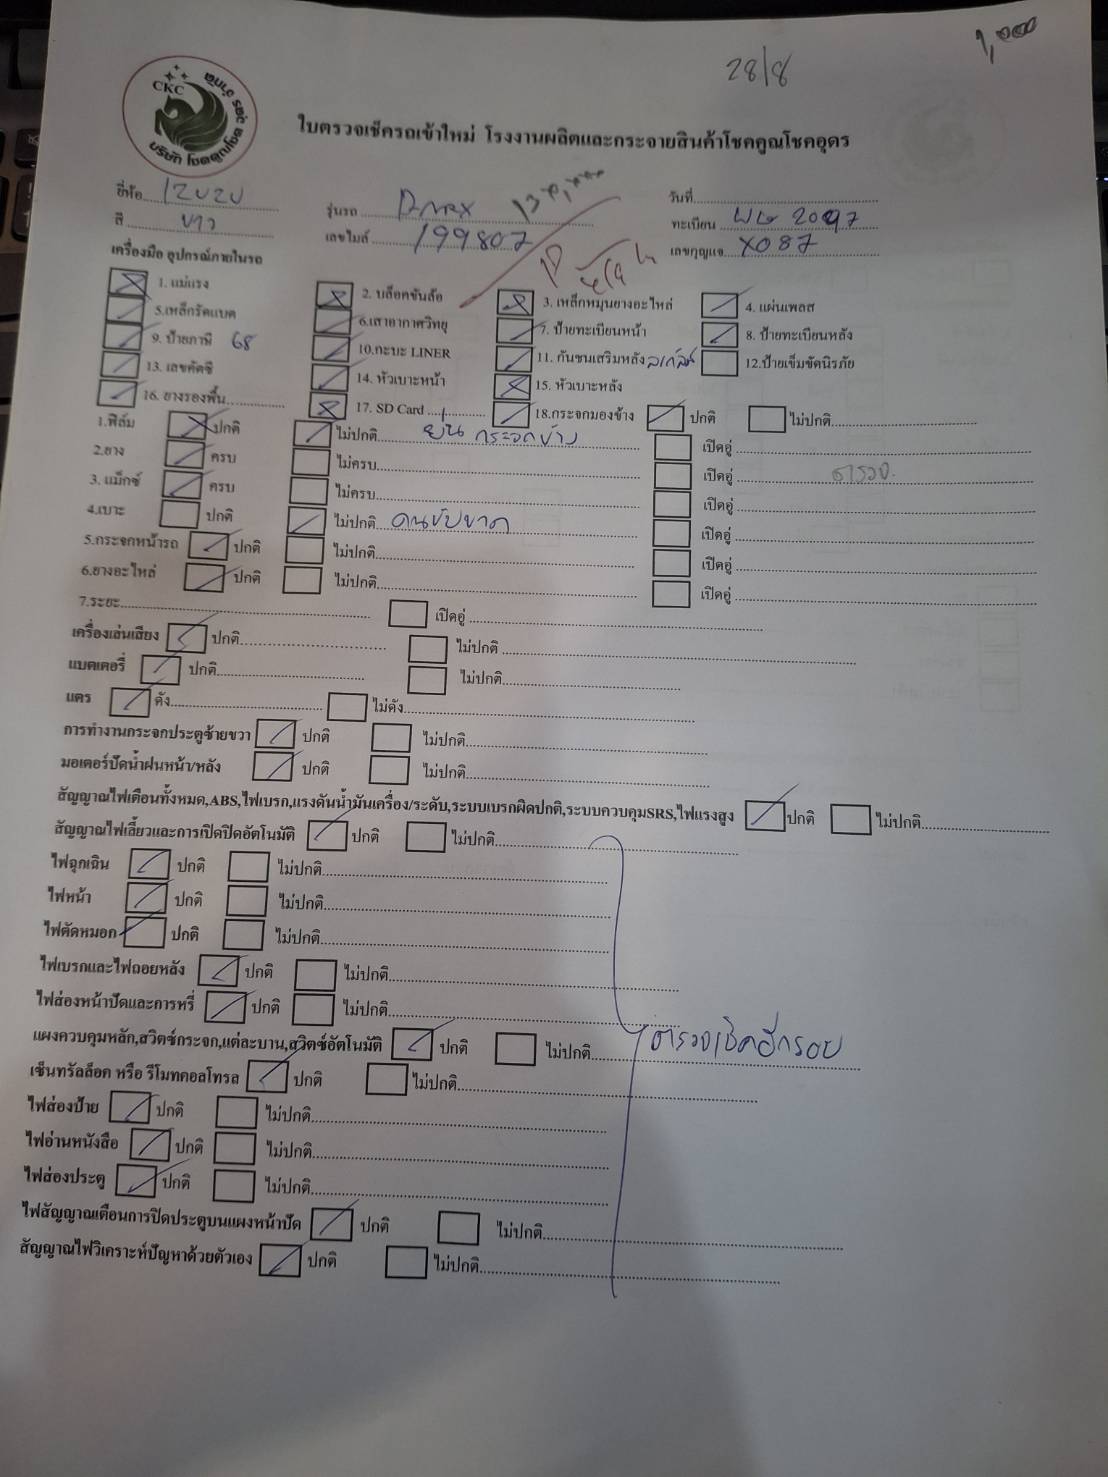 28/8
1,000
CKC
บริษัท โชคคูณโชค อุดร จำกัด
ใบตรวจเช็ครถเข้าใหม่ โรงงานผลิตและกระจายสินค้าโชคคูณโชคอุดร
ยี่ห้อ รุ่นรถ Dmax วันที่
สี ขาว เลขไมล์ 199807 ทะเบียน
เครื่องมือ อุปกรณ์ภายในรถ เลขกุญแจ X087
1. แม่แรง 2. บล็อคขันล้อ 3. เหล็กหมุนยางอะไหล่ 4. แผ่นเพลส
5.เหล็กรัดแบต 6.เสาอากาศวิทยุ 7. ป้ายทะเบียนหน้า 8. ป้ายทะเบียนหลัง
9. ป้ายภาษี 68 10.กะบะ LINER 11. กันชนเสริมหลัง 12.ป้ายเข็มขัดนิรภัย
13. เลขคัดซี 14. หัวเบาะหน้า 15. หัวเบาะหลัง
16. ยางรองพื้น 17. SD Card 18.กระจกมองข้าง ปกติ ไม่ปกติ
1.ฟิล์ม ปกติ ไม่ปกติ กระจกข้าง เปิดอู่
2.ยาง ครบ ไม่ครบ เปิดอู่ ตรวจ
3. แม็กซ์ ครบ ไม่ครบ เปิดอู่
4.เบาะ ปกติ ไม่ปกติ คนขับขาด เปิดอู่
5.กระจกหน้ารถ ปกติ ไม่ปกติ เปิดอู่
6.ยางอะไหล่ ปกติ ไม่ปกติ เปิดอู่
7.ระยะ เปิดอู่
เครื่องเล่นเสียง ปกติ ไม่ปกติ
แบตเตอรี่ ปกติ ไม่ปกติ
แตร ดัง ไม่ดัง
การทำงานกระจกประตูซ้ายขวา ปกติ ไม่ปกติ
มอเตอร์ปัดน้ำฝนหน้า/หลัง ปกติ ไม่ปกติ
สัญญาณไฟเตือนทั้งหมด,ABS,ไฟเบรก,แรงดันน้ำมันเครื่อง/ระดับ,ระบบเบรกผิดปกติ,ระบบควบคุมSRS,ไฟแรงสูง ปกติ ไม่ปกติ
สัญญาณไฟเลี้ยวและการเปิดปิดอัตโนมัติ ปกติ ไม่ปกติ
ไฟฉุกเฉิน ปกติ ไม่ปกติ
ไฟหน้า ปกติ ไม่ปกติ
ไฟตัดหมอก ปกติ ไม่ปกติ
ไฟเบรกและไฟถอยหลัง ปกติ ไม่ปกติ
ไฟส่องหน้าปัดและการหรี่ ปกติ ไม่ปกติ
แผงควบคุมหลัก,สวิตซ์กระจก,แต่ละบาน,สวิตซ์อัตโนมัติ ปกติ ไม่ปกติ ตรวจเช็คอีกรอบ
เซ็นทรัลล็อค หรือ รีโมทคอลโทรล ปกติ ไม่ปกติ
ไฟส่องป้าย ปกติ ไม่ปกติ
ไฟอ่านหนังสือ ปกติ ไม่ปกติ
ไฟส่องประตู ปกติ ไม่ปกติ
ไฟสัญญาณเตือนการปิดประตูบนแผงหน้าปัด ปกติ ไม่ปกติ
สัญญาณไฟวิเคราะห์ปัญหาด้วยตัวเอง ปกติ ไม่ปกติ